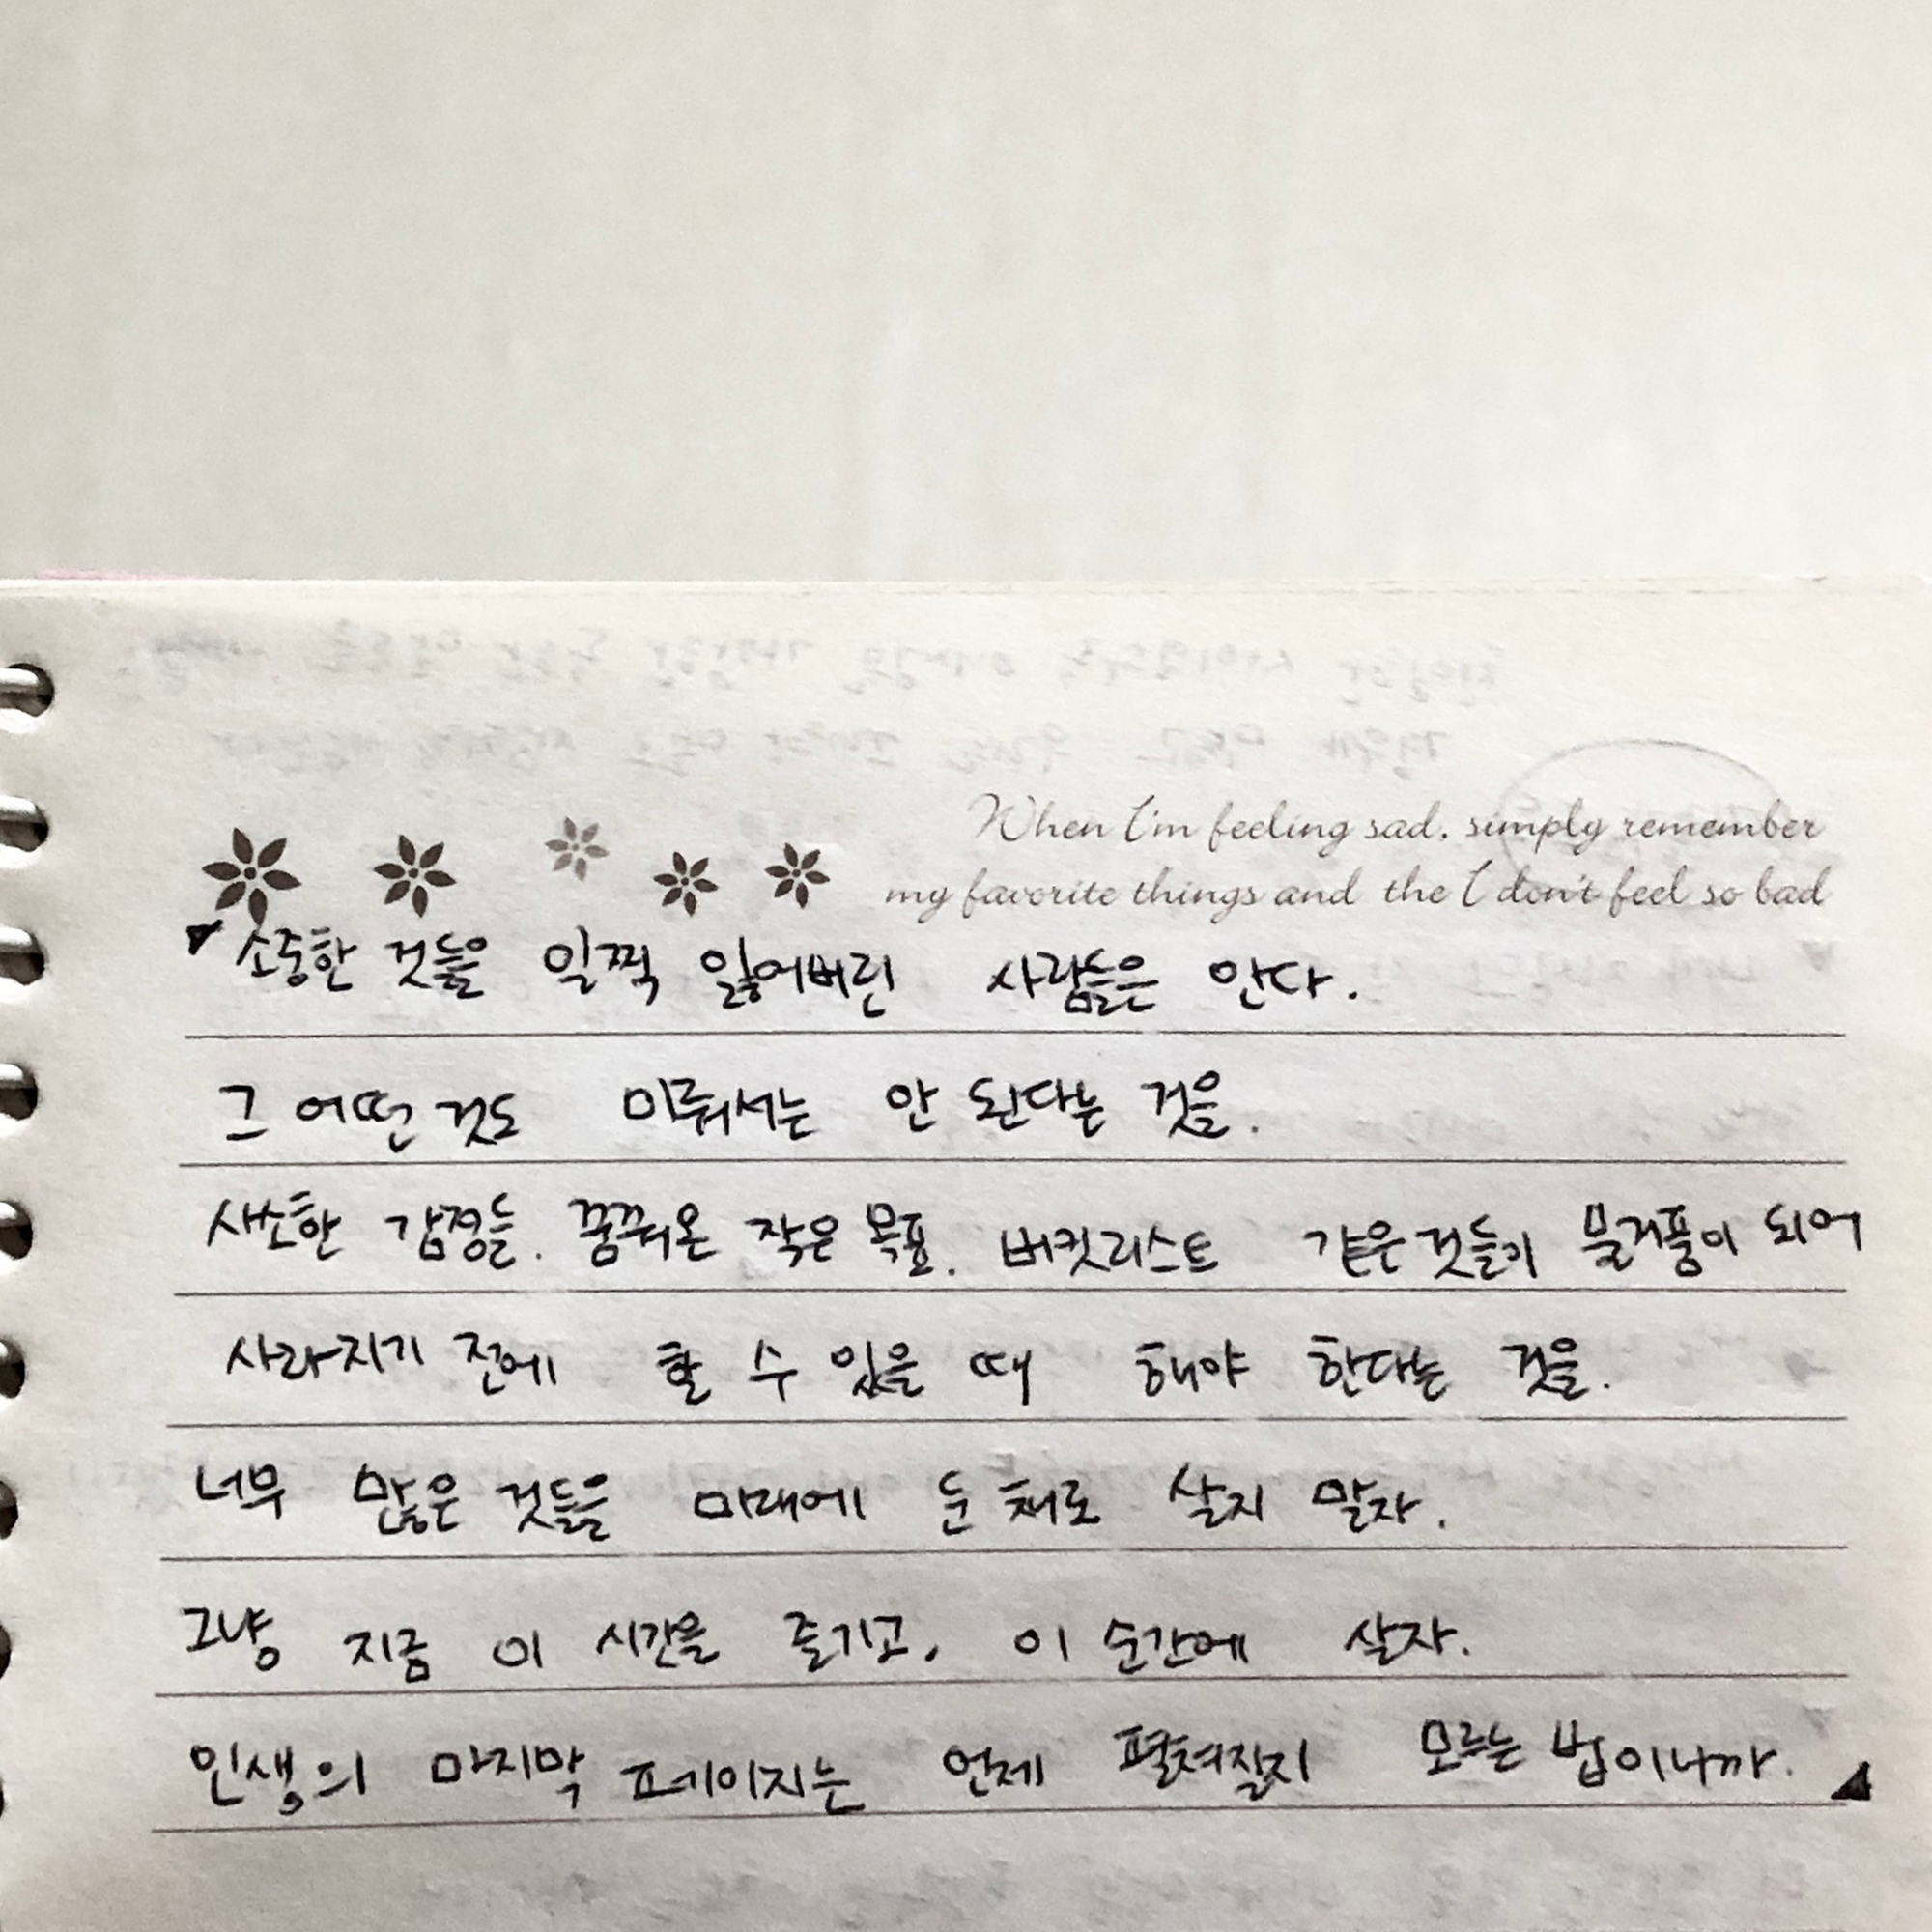 When I'm feeling sad. simply remember
my favorite things and the I don't feel so bad
소중한 것들을 일찍 잃어버린 사람들은 안다.
그 어떤 것도 미뤄서는 안 된다는 것을.
사소한 감정들. 꿈꿔온 작은 목표. 버킷리스트 같은 것들이 물거품이 되어
사라지기 전에 할 수 있을 때 해야 한다는 것을.
너무 많은 것들을 미래에 둔 채로 살지 말자.
그냥 지금 이 시간을 즐기고, 이 순간에 살자.
인생의 마지막 페이지는 언제 펼쳐질지 모르는 법이니까.